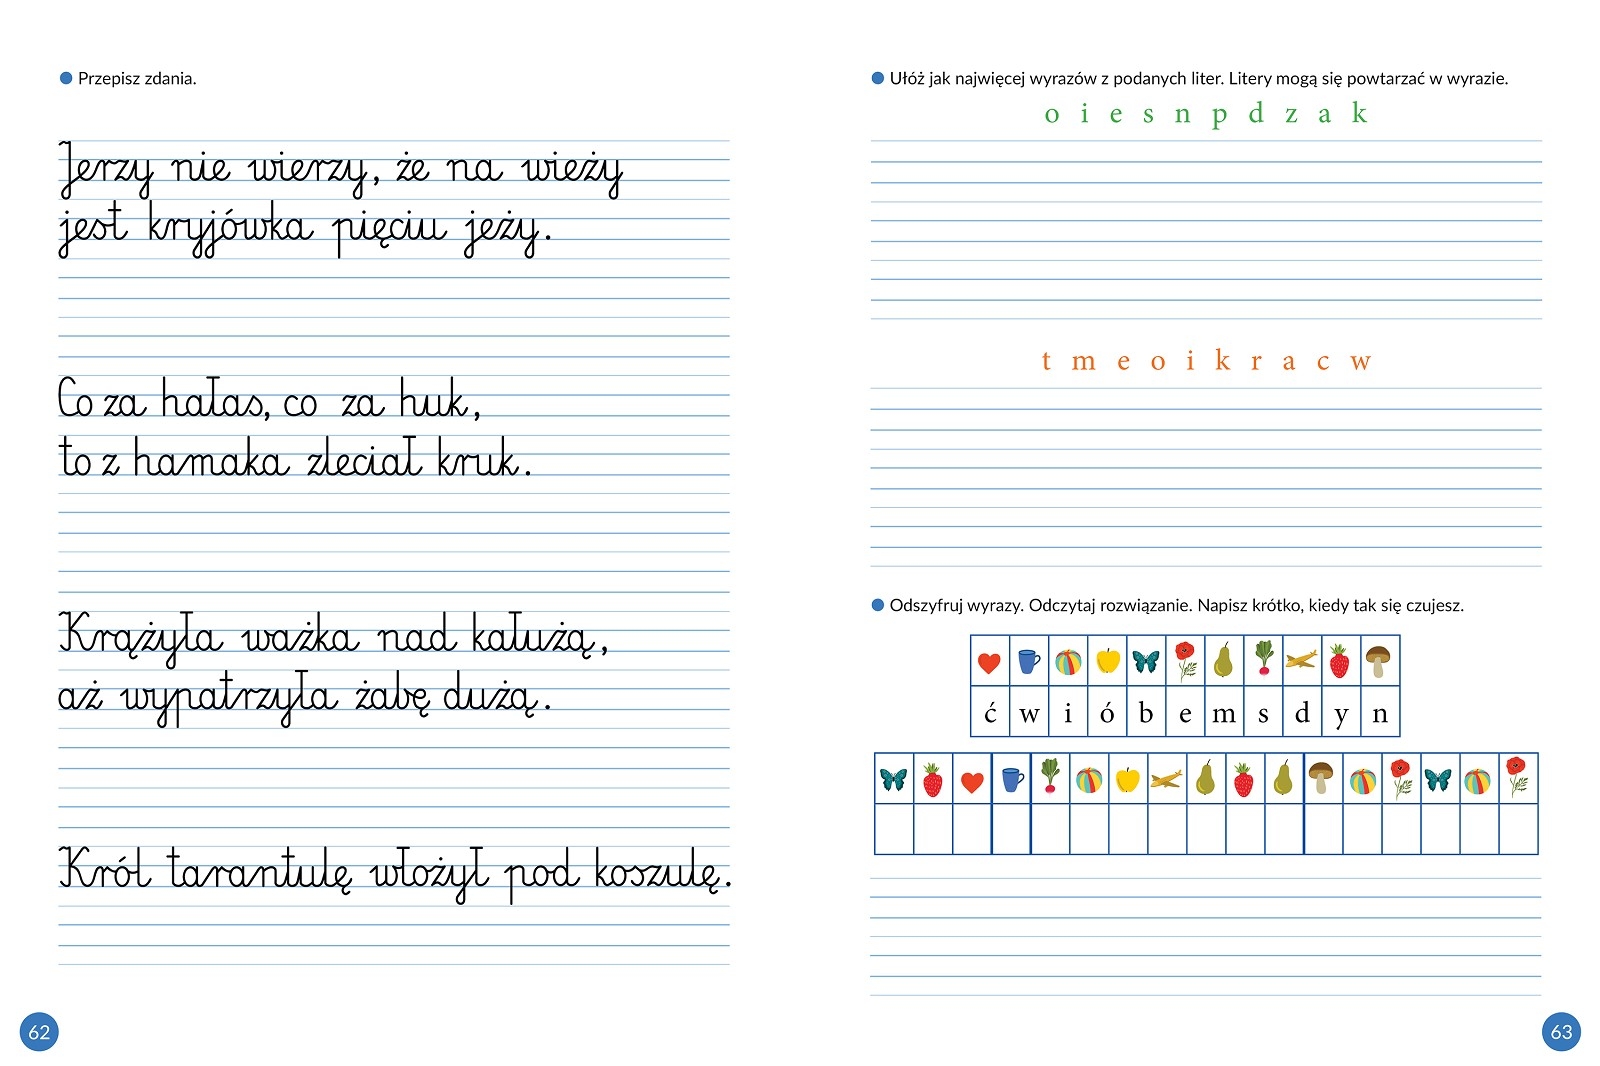 Przepisz zdania.
Jerzy nie wierzy, że na wieży
jest kryjówka pięciu jeży.
Co za hałas, co za huk,
to z hamaka zleciał kruk.
Krążyła ważka nad kałużą,
aż wypatrzyła żabę dużą.
Król tarantulę włożył pod koszulę.
62
Ułóż jak najwięcej wyrazów z podanych liter. Litery mogą się powtarzać w wyrazie.
o i e s n p d z a k
t m e o i k r a c w
Odszyfruj wyrazy. Odczytaj rozwiązanie. Napisz krótko, kiedy tak się czujesz.
ć w i ó b e m s d y n
63